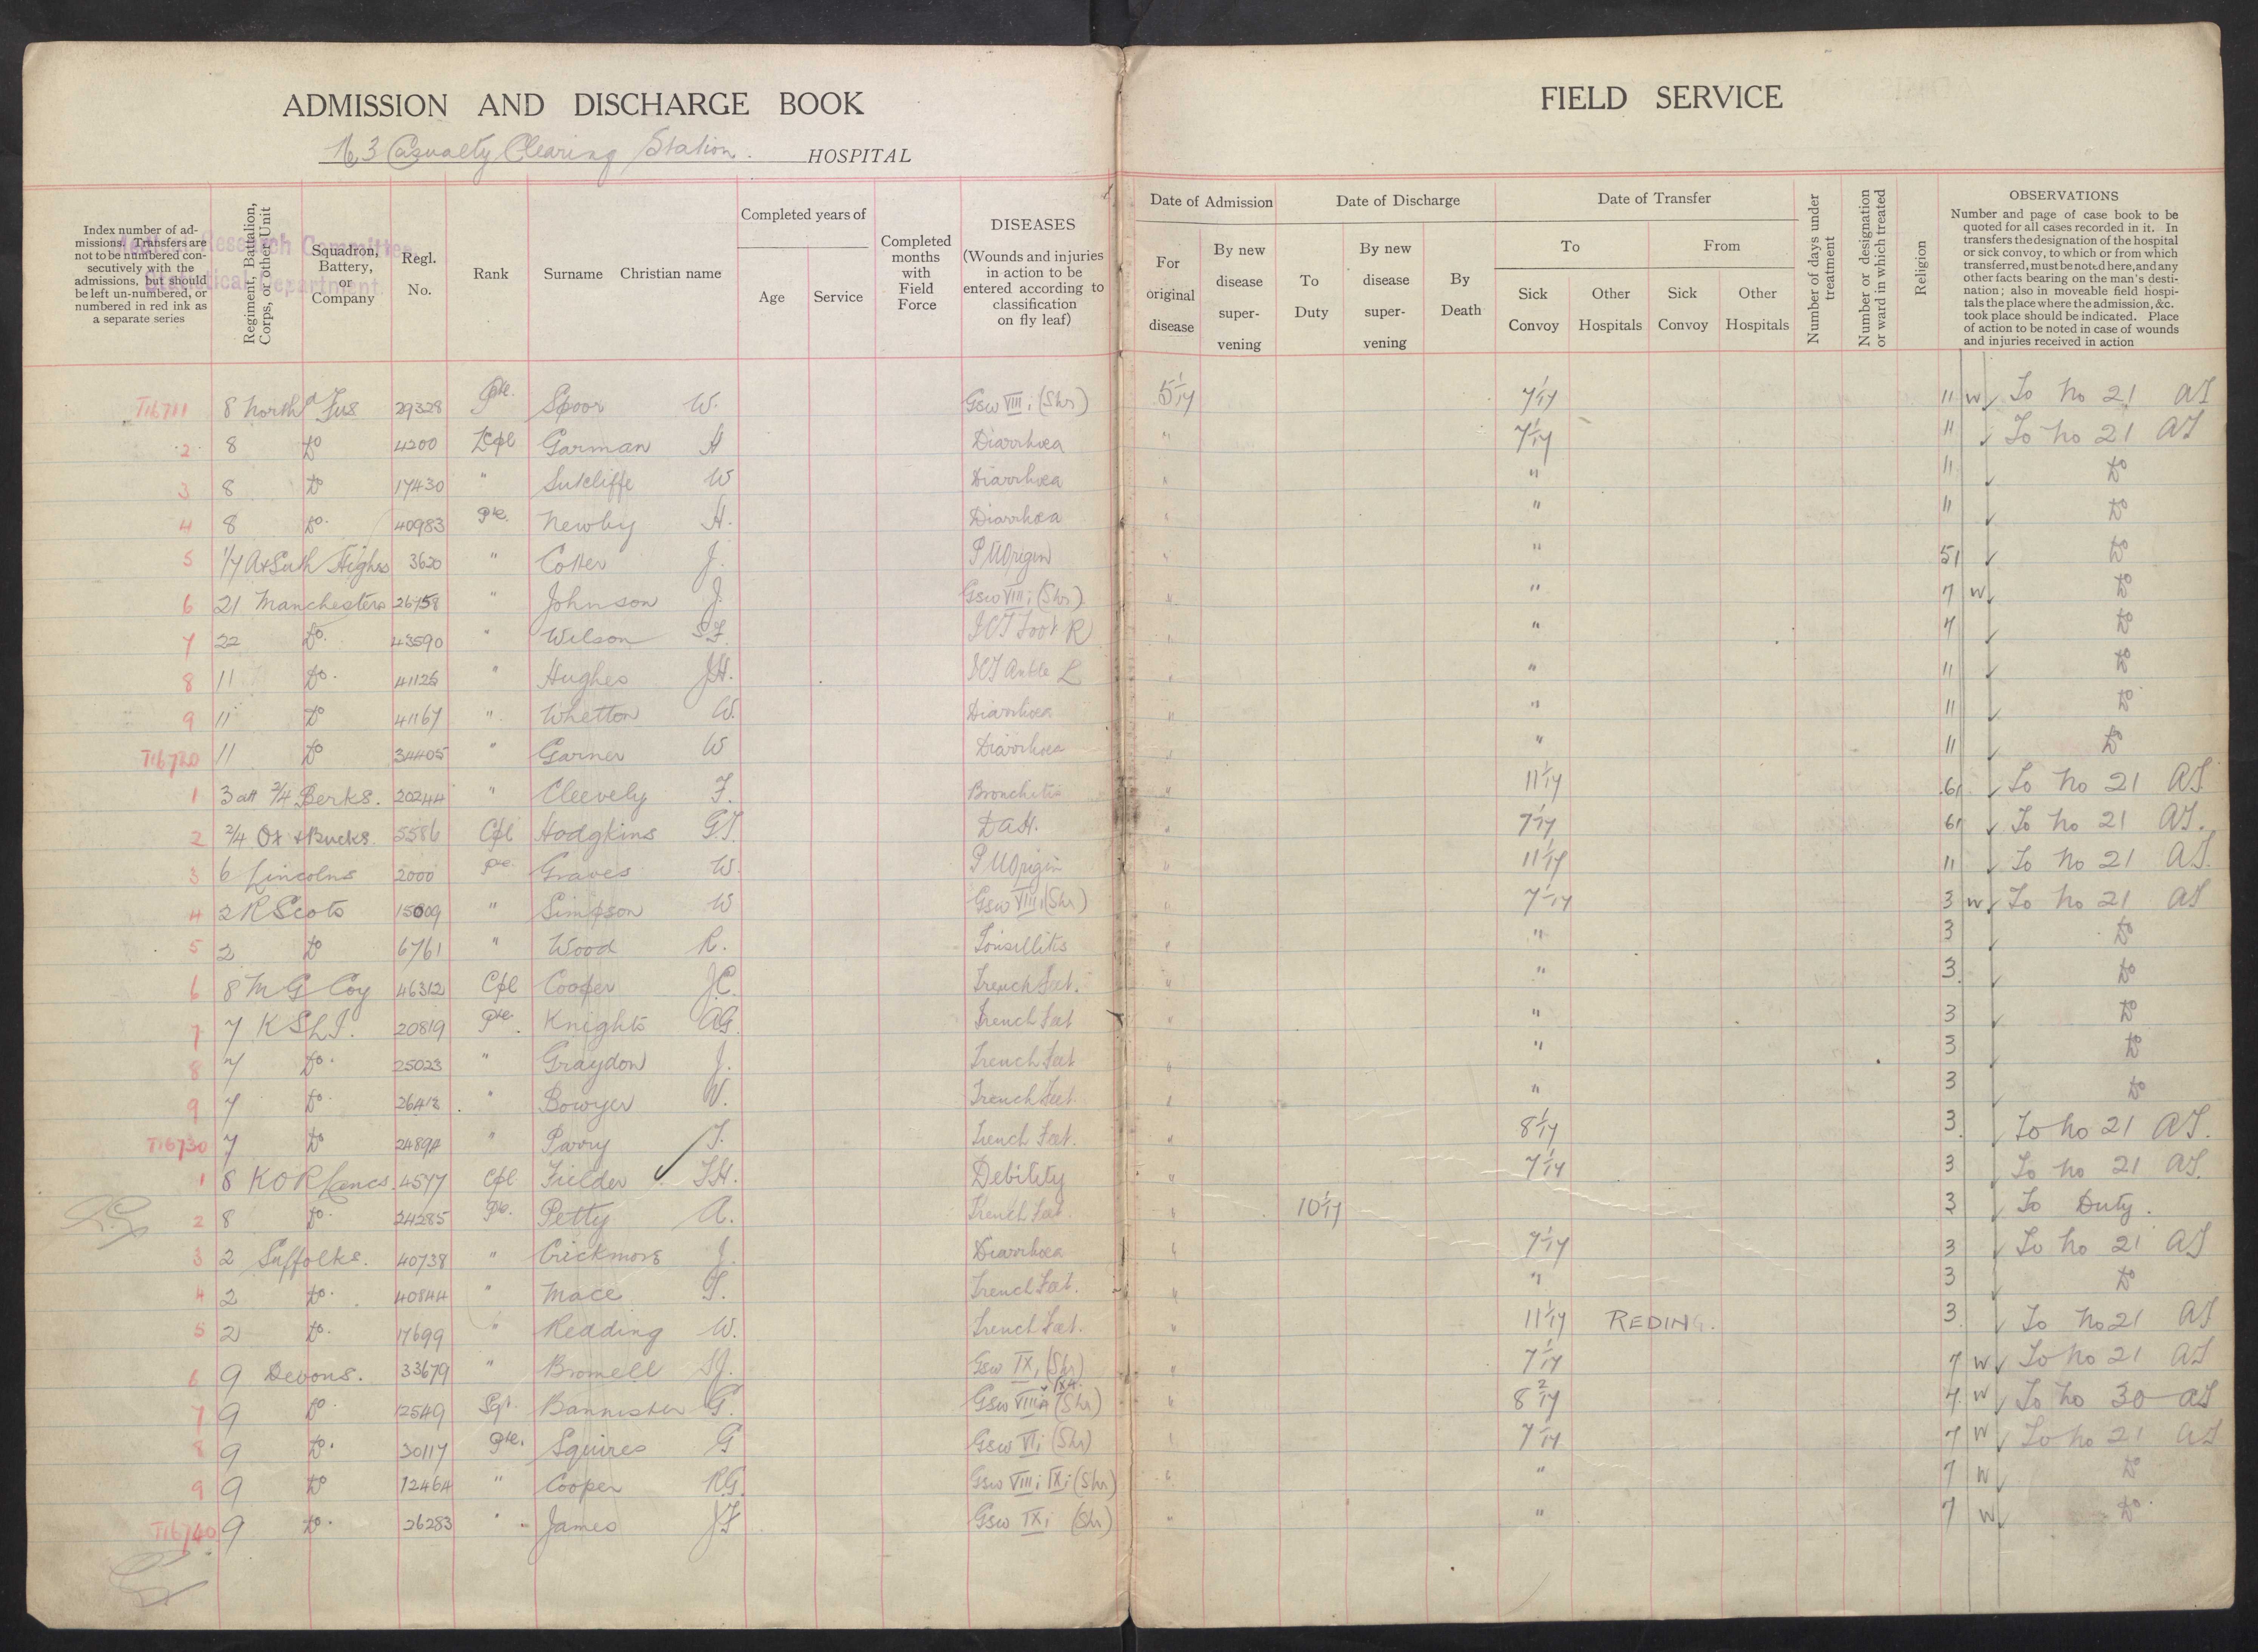 ADMISSION AND DISCHARGE BOOK
No 3 Casualty Clearing Station. HOSPITAL
FIELD SERVICE
Medical Research Committee
Statistical Department
Index number of admissions. Transfers are not to be numbered consecutively with the admissions, but should be left un-numbered, or numbered in red ink as a separate series
Regiment, Battalion, Corps, or other Unit
Squadron, Battery, or Company
Regl. No.
Rank
Surname Christian name
Completed years of
Age
Service
Completed months with Field Force
DISEASES
(Wounds and injuries in action to be entered according to classification on fly leaf)
Date of Admission
For original disease
By new disease supervening
Date of Discharge
To Duty
By new disease supervening
By Death
Date of Transfer
To
From
Sick Convoy
Other Hospitals
Sick Convoy
Other Hospitals
Number of days under treatment
Number or designation or ward in which treated
Religion
OBSERVATIONS
Number and page of case book to be quoted for all cases recorded in it. In transfers the designation of the hospital or sick convoy, to which or from which transferred, must be noted here, and any other facts bearing on the man's destination; also in moveable field hospitals the place where the admission, &c. took place should be indicated. Place of action to be noted in case of wounds and injuries received in action
T16711 8 Northd Fus 29328 Pte. Spoor W. Gsw VIII i (Shr) 5/1/17 7/1/17 11 W To No 21 AT
2 8 Do 4200 LCpl Garman H Diarrhoea " 7/1/17 11 To No 21 AT
3 8 Do 17430 " Sutcliffe W Diarrhoea " " 11 Do
4 8 Do. 40983 Pte. Newby H. Diarrhoea " " 11 Do
5 1/7 A & Suth Highrs 3620 " Cotter J. P U Origin " " 51 Do
6 21 Manchesters 26758 " Johnson J. Gsw VIII i (Shr) " " 7 W Do
7 22 Do. 43590 " Wilson S.F. ICT Foot R " " 7 Do
8 11 Do. 41125 " Hughes J.H. ICT Ankle L " " 11 Do
9 11 Do 41167 " Whetton W. Diarrhoea " " 11 Do
T16720 11 Do 34405 " Garner W Diarrhoea " " 11 Do
1 3 att 2/4 Berks. 20244 " Cleevely F. Bronchitis " 11/1/17 61 To No 21 AT
2 2/4 Ox & Bucks. 5586 Cpl Hodgkins G.T. DAH. " 7/1/17 61 To No 21 AT.
3 6 Lincolns 2000 Pte. Graves W. P U Origin " 11/1/17 11 To No 21 AT.
4 2 R Scots 15809 " Simpson W Gsw VIII i (Shr) " 7/1/17 3 W To No 21 AT
5 2 Do 6761 " Wood R. Tonsillitis " " 3 Do
6 8 M G Coy 46312 Cpl Cooper J.C. Trench Feet. " " 3 Do
7 7 K S L I. 20819 Pte. Knights A.G. Trench Feet " " 3 Do
8 7 Do. 25023 " Graydon J. Trench Feet " " 3 Do
9 7 Do. 26412 " Bowyer W. Trench Feet. " " 3 Do
T16730 7 Do 24894 " Parry T. Trench Feet. " 8/1/17 3 To No 21 AT.
1 8 K O R Lancs. 4577 Cpl Fielder T.H. Debility " 7/1/17 3 To No 21 AT.
2 8 Do. 24285 Pte. Petty A. Trench Feet. " 10/1/17 3 To Duty.
3 2 Suffolks. 40738 " Crickmore J. Diarrhoea " 7/1/17 3 To No 21 AT
4 2 Do. 40844 " Mace T. Trench Feet. " " 3 Do
5 2 Do. 17699 " Redding W. Trench Feet. " 11/1/17 REDING. 3 To No 21 AT
6 9 Devons. 33679 " Bromell S.J. Gsw IX i (Shr) " 7/1/17 7 W To No 21 AT
7 9 Do. 12549 Sgt. Bannister G. Gsw VIII a & IX a (Shr) " 8/2/17 7 W To No 30 AT
8 9 Do. 30117 Pte. Squires G Gsw VI i (Shr) " 7/1/17 7 W To No 21 AT
9 9 Do 12464 " Cooper R.G. Gsw VIII i IX i (Shr) " " 7 W Do
T16740 9 Do. 26283 " James J.F. Gsw IX i (Shr) " " 7 W Do.